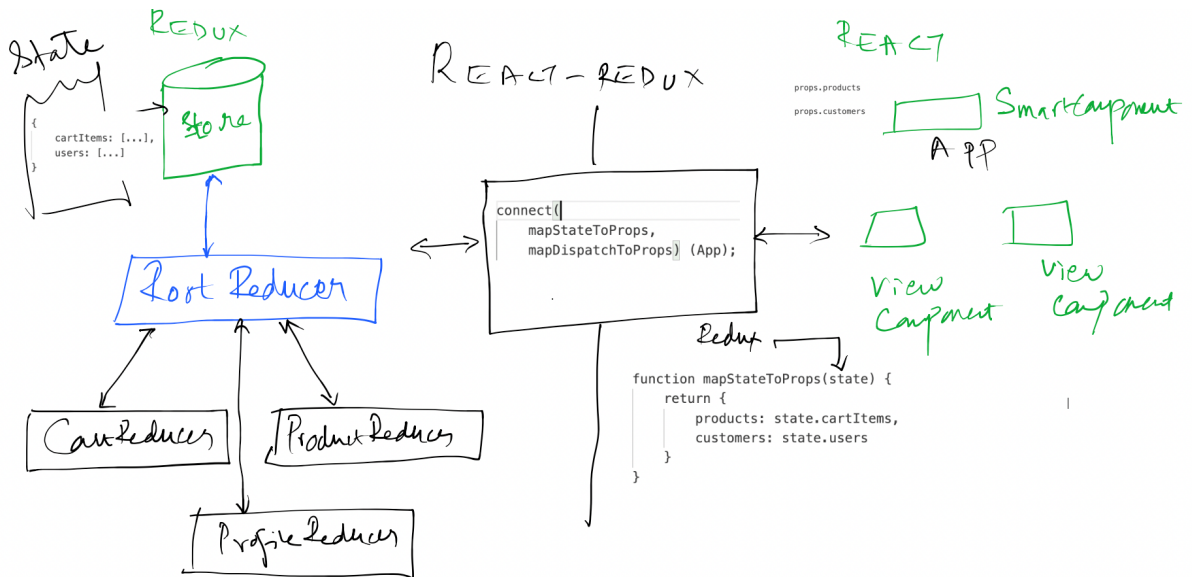 State
{
cartItems: [...],
users: [...]
}
REDUX
Store
Root Reducer
CartReducer
ProductReducer
ProfileReducer
REACT-REDUX
connect(
mapStateToProps,
mapDispatchToProps) (App);
Redux
function mapStateToProps(state) {
return {
products: state.cartItems,
customers: state.users
}
}
REACT
props.products
props.customers
SmartComponent
APP
View
Component
View
Component